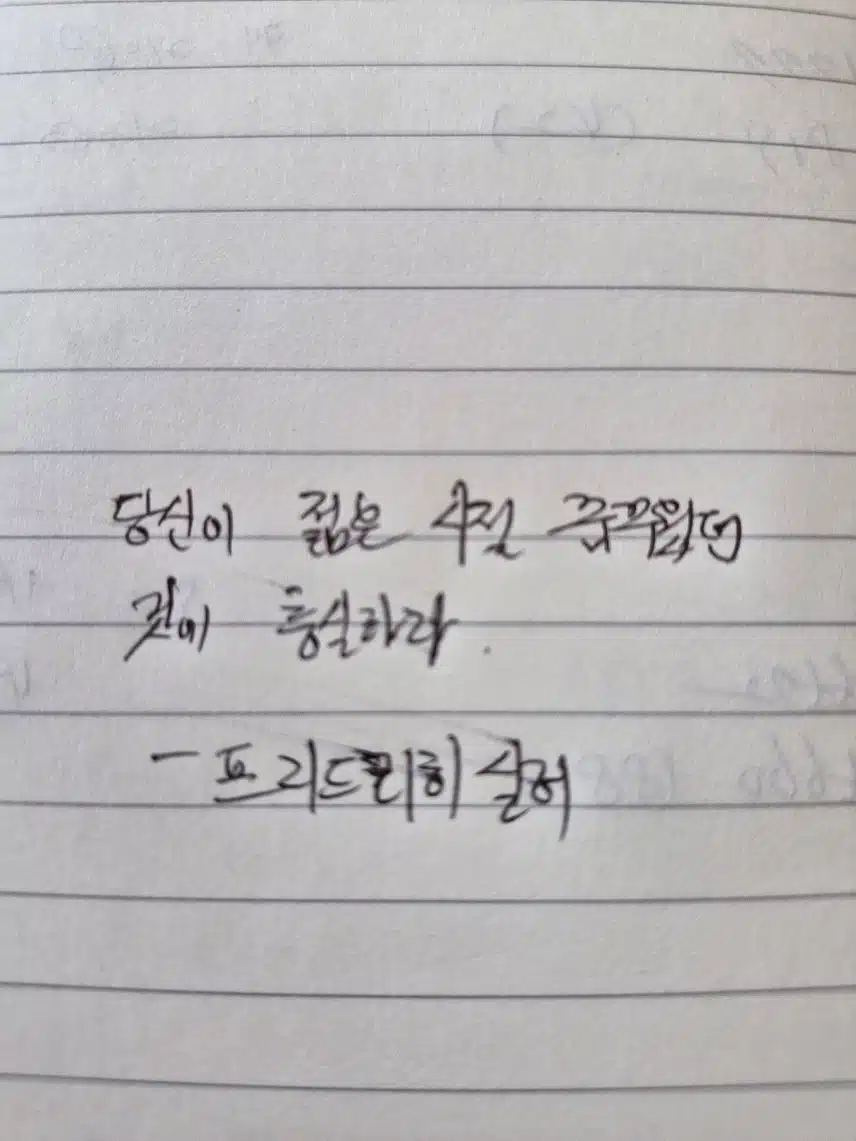 당신이 젊은 시절 꾸꾸웠던
것에 충실하라.
- 프리드리히 실러